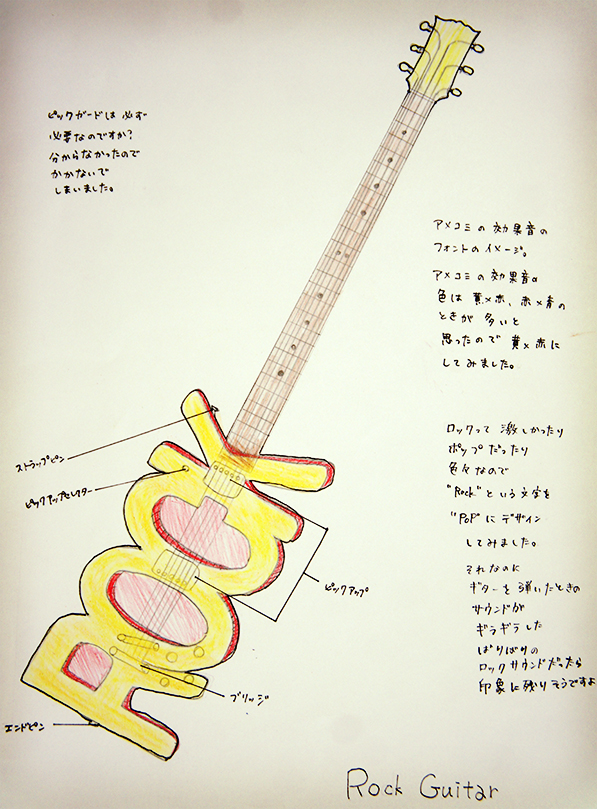 ピックガードは必ず
必要なのですか?
分からなかったので
かかないで
しまいました。
アメコミの効果音の
フォントのイメージ。
アメコミの効果音の
色は黄×赤、赤×青の
ときが多いと
思ったので黄×赤に
してみました。
ロックって激しかったり
ポップだったり
色々なので
"Rock"という文字を
"POP"にデザイン
してみました。
それなのに
ギターを弾いたときの
サウンドが
ギラギラした
ばりばりの
ロックサウンドだったら
印象に残りそうですよ
ストラップピン
ピックアップセレクター
ピックアップ
ブリッジ
エンドピン
ROCK
Rock Guitar